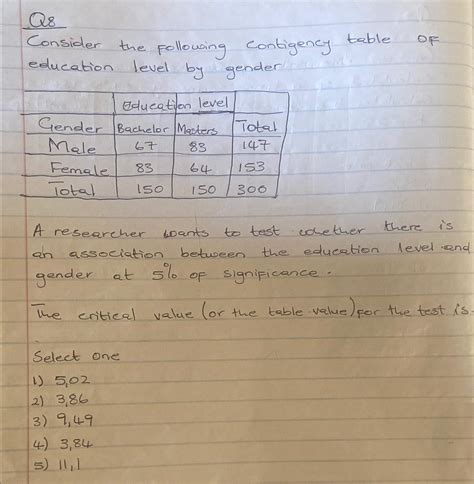 Q8
Consider the following contigency table of
education level by gender
education level
Gender Bachelor Masters Total
Male 67 83 147
Female 83 64 153
Total 150 150 300
A researcher wants to test whether there is
an association between the education level and
gender at 5% of significance.
The critical value (or the table value) for the test is.
Select one
1) 5,02
2) 3,86
3) 9,49
4) 3,84
5) 11,1